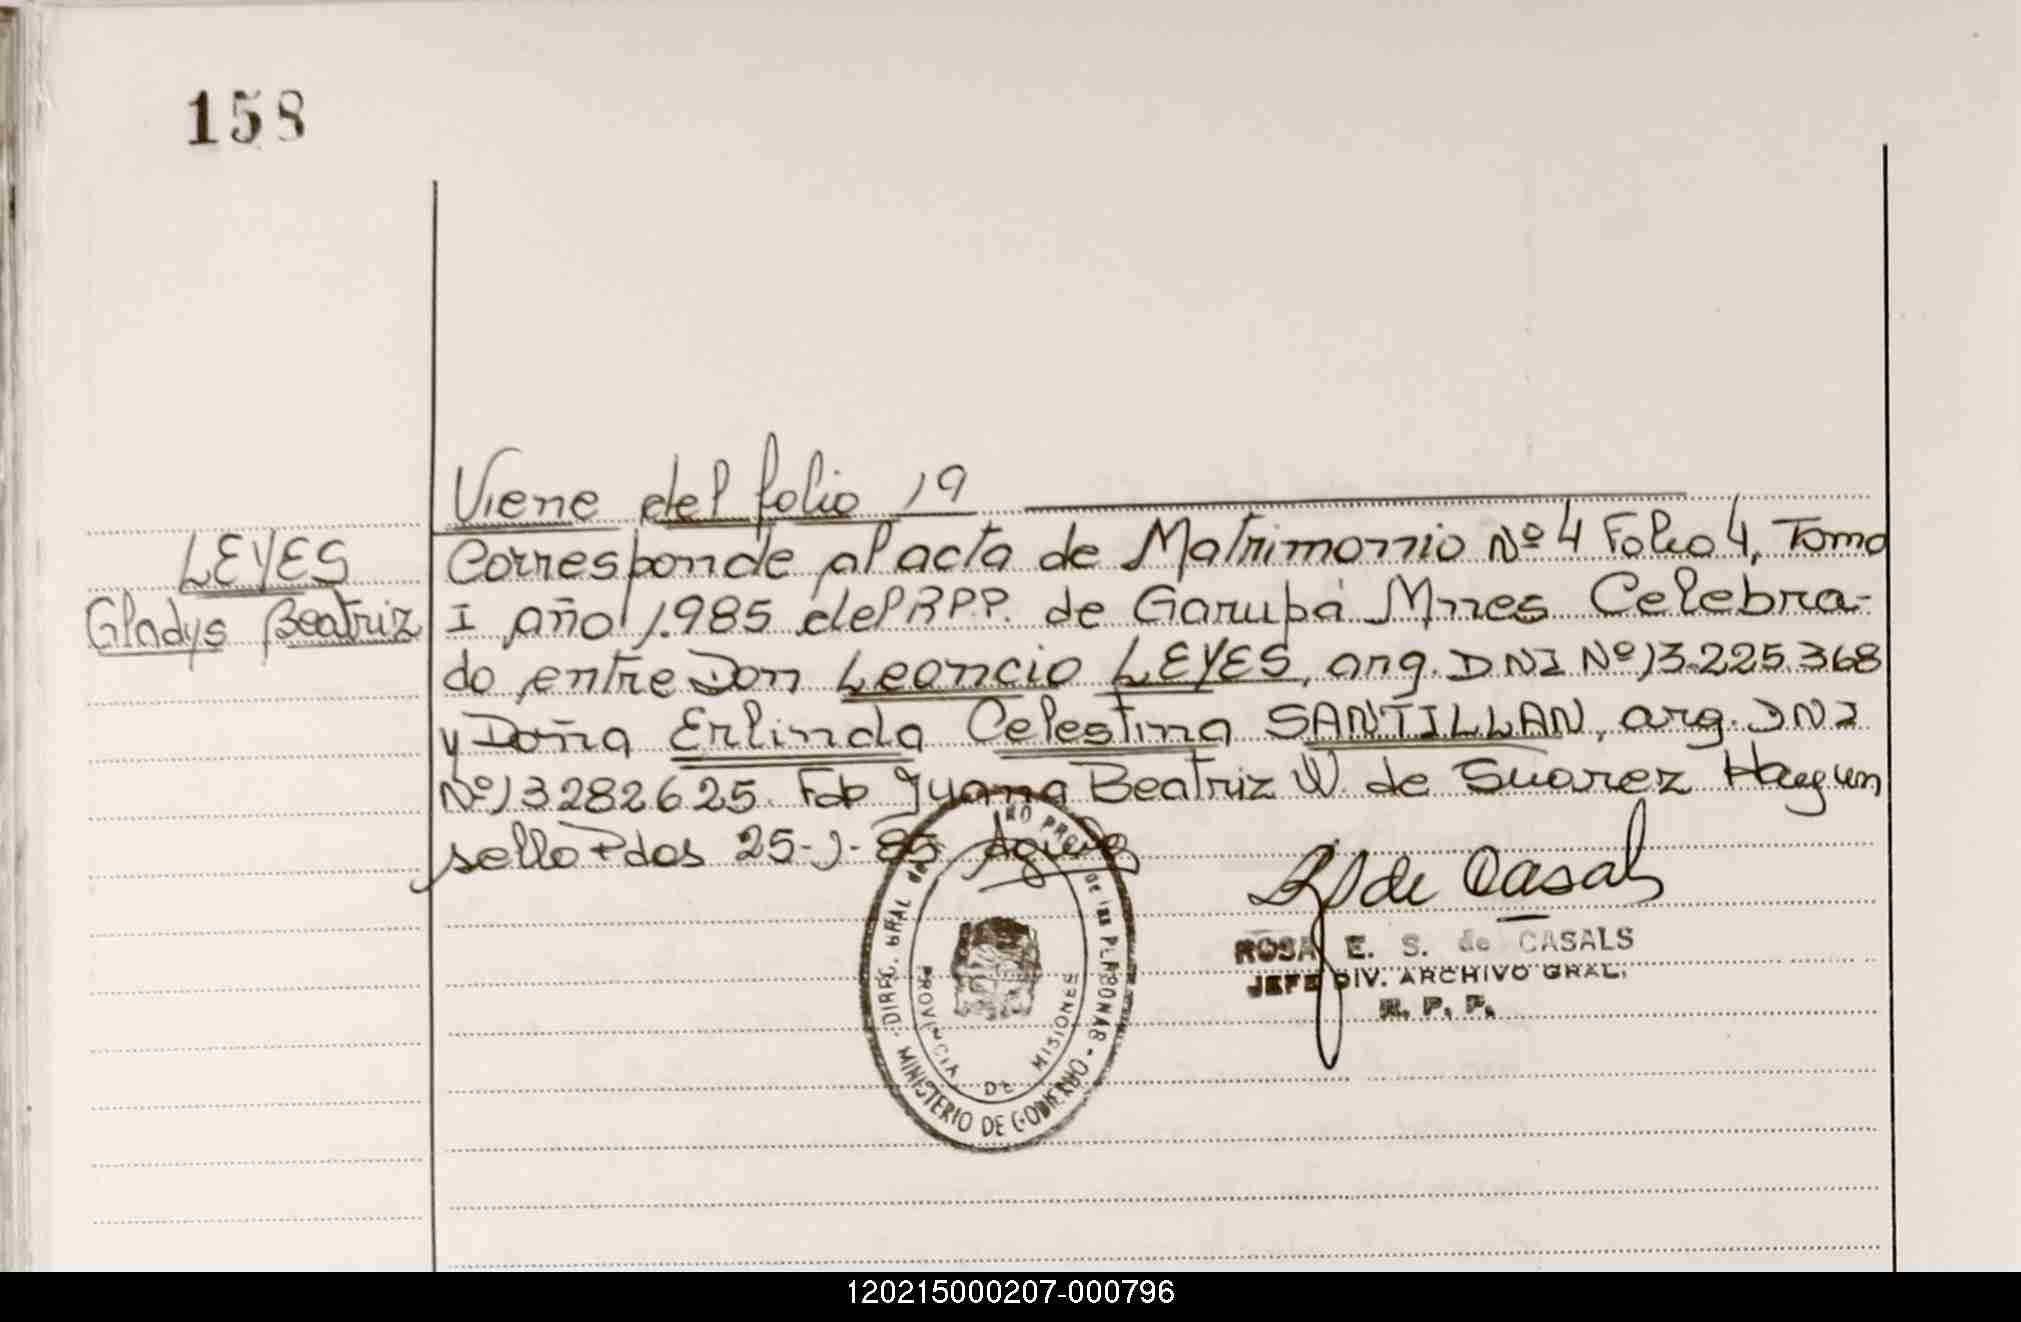 158
Viene del folio 19
LEYES
Gladys Beatriz
Corresponde al acta de Matrimonio Nº 4 Folio 4, Tomo
I año 1.985 del R.P.P. de Garupá Mnes Celebra-
do entre Don Leoncio LEYES, arg. DNI Nº 13.225.368
y Doña Erlinda Celestina SANTILLAN, arg. DNI
Nº 13282625. Fdo Juana Beatriz W. de Suarez Hay un
sello Pdos 25-1-85
de Casals
ROSA E. S. de CASALS
JEFE DIV. ARCHIVO GRAL.
R. P. P.
DIREC. GRAL del PROV. DE LAS PERSONAS - MINISTERIO DE GOBIERNO -
PROVINCIA DE MISIONES
120215000207-000796